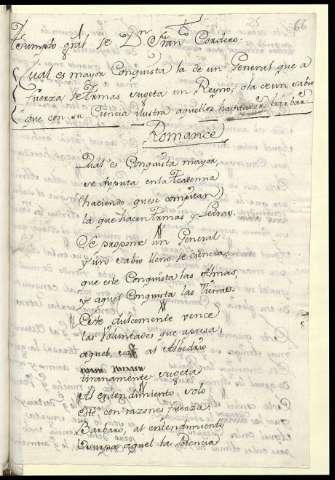 66
Asumpto gral de Dn Franco Cordero.
Qual es mayor Conquista la de un General que a
fuerza de Armas sugeta un Reyno, o la de un sabio
que con su Ciencia ilustra aquellos havitadores barbar
Romance
Qual es Conquista mayor
se disputa en la Academia
haciendo que se compitan
la que hacen Armas, y Letras.
Se propone un General
y un sabio lleno de ciencias,
que este Conquista las Almas,
y aquel Conquista las tierras.
Este dulcemente vence
las voluntades que
aquel al Albedrio
tiranamente sugeta
Al entendimiento solo
este con razones fuerza,
Barbaro, al entendimiento
aquel la Potencia